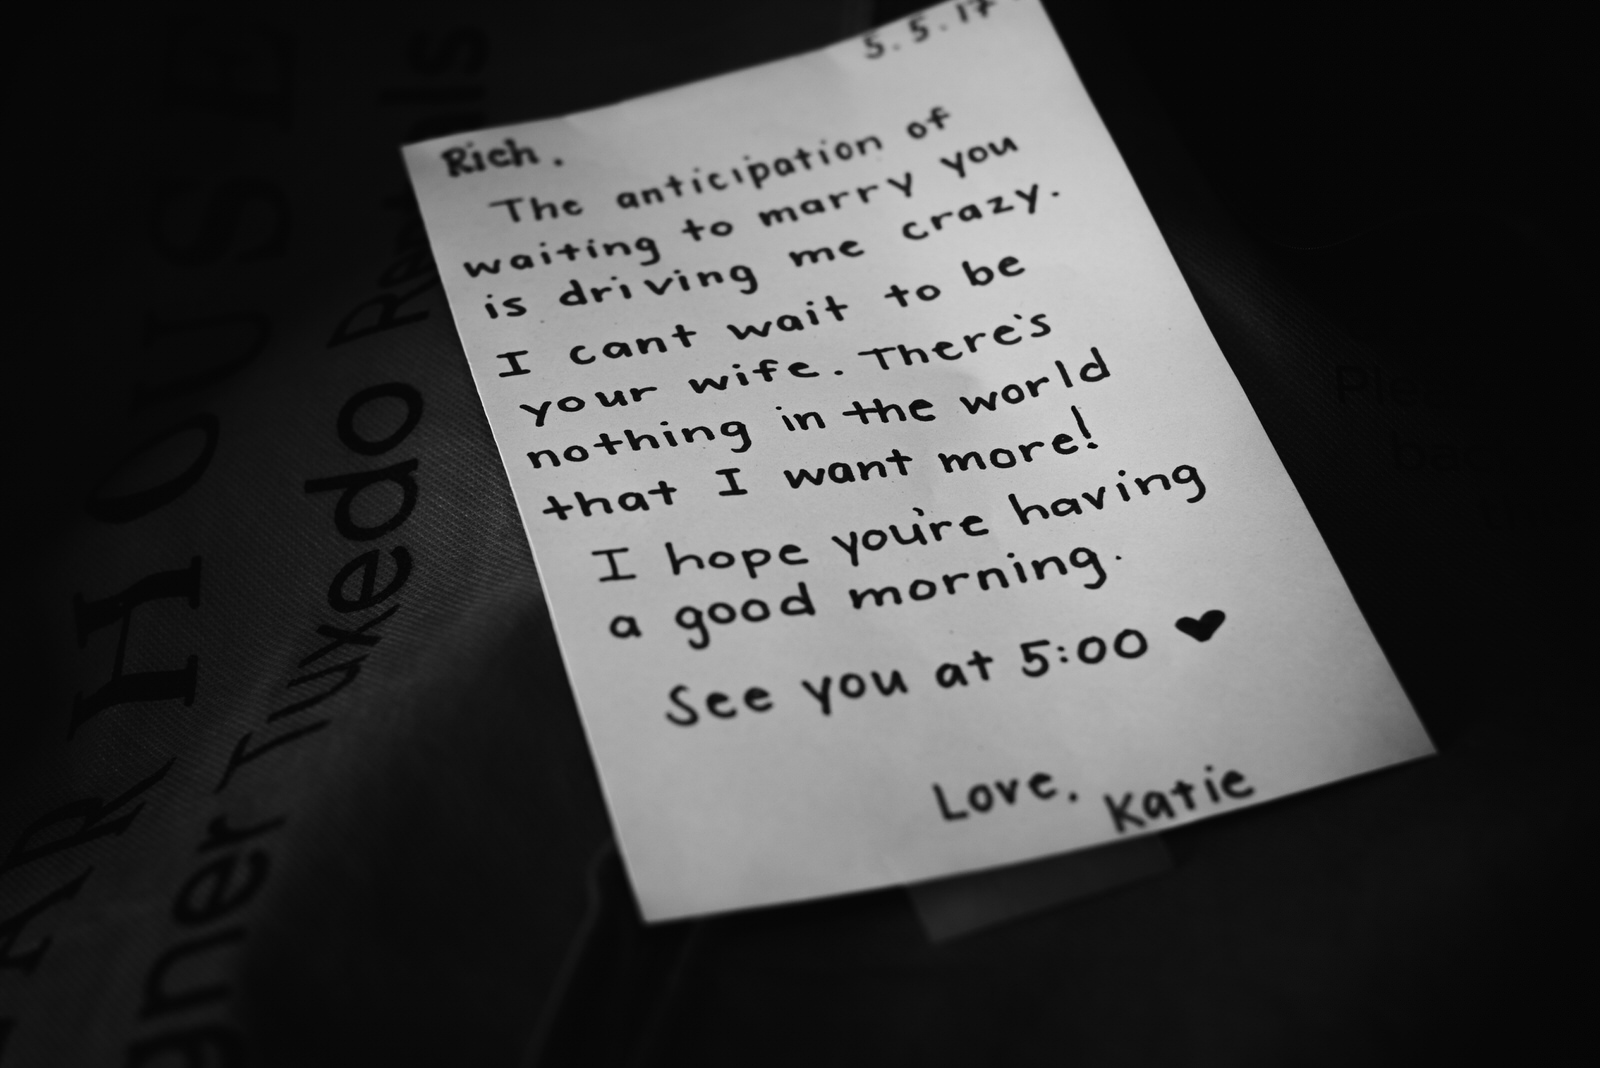 5.5.17
Rich.
The anticipation of
waiting to marry you
is driving me crazy.
I cant wait to be
your wife. There's
nothing in the world
that I want more!
I hope you're having
a good morning.
See you at 5:00 ♥
Love. Katie
Tuxedo Rentals